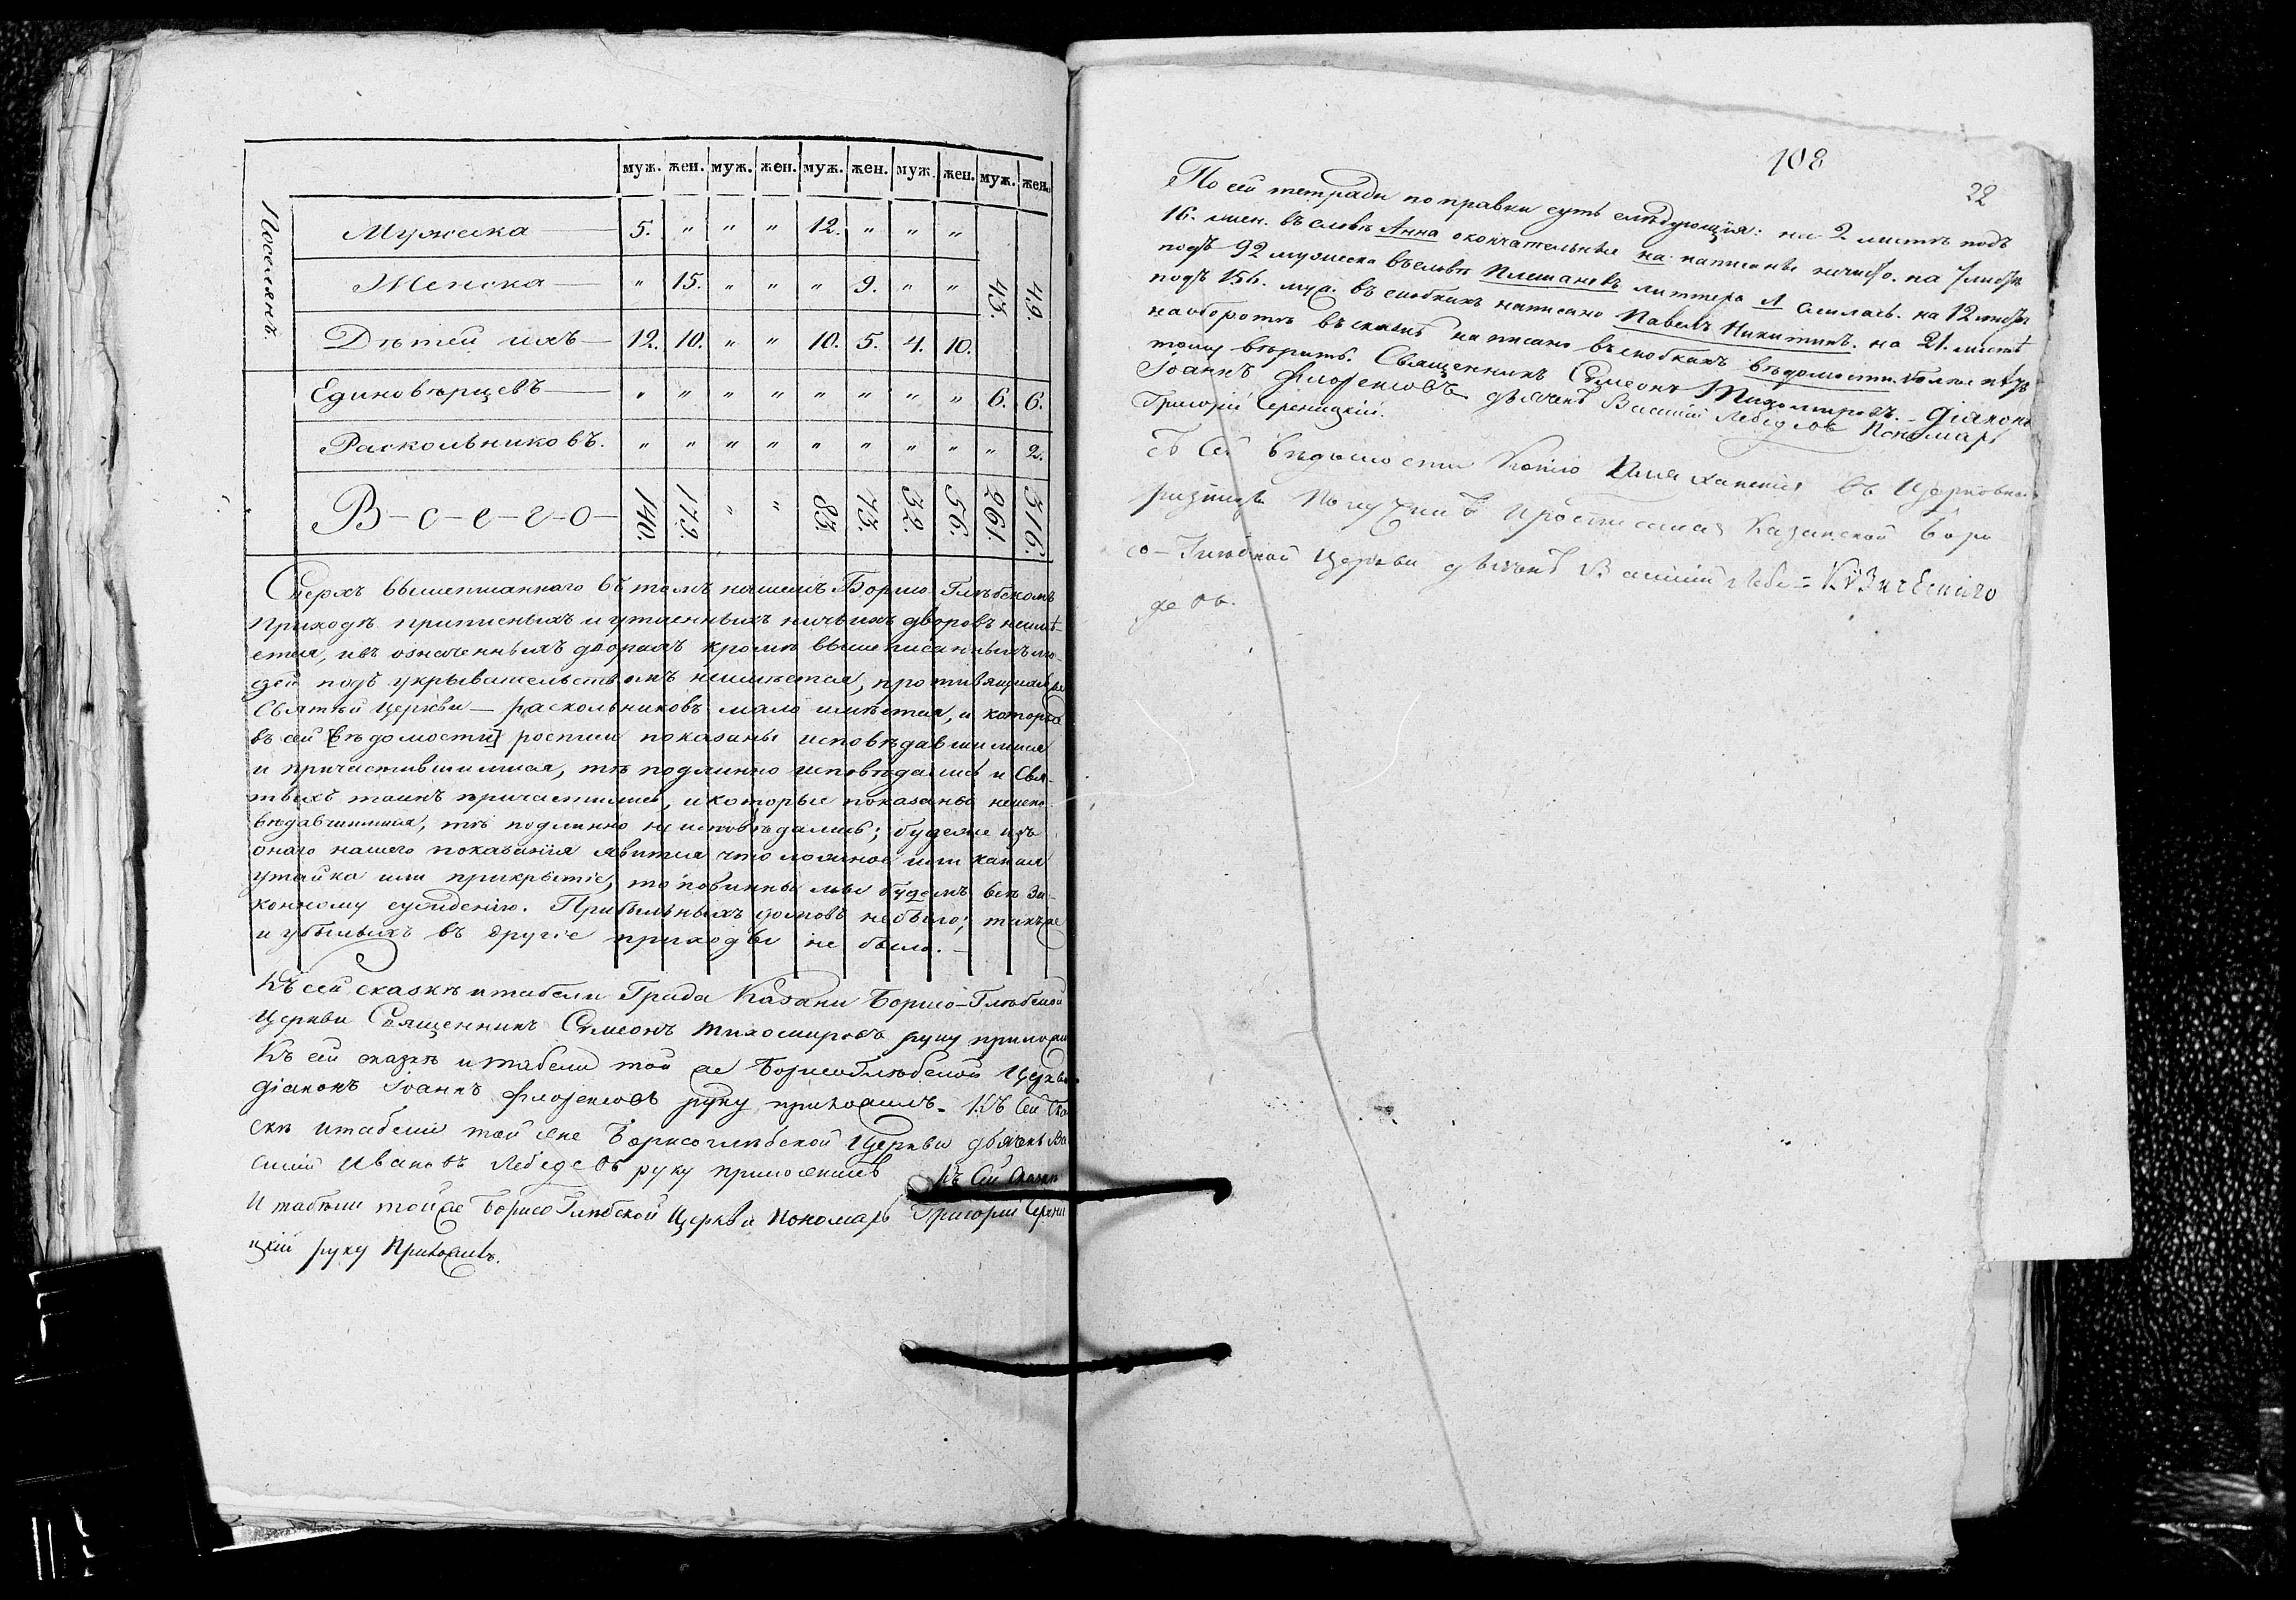 муж. жен. муж. жен. муж. жен. муж. жен. муж. жен.
Поселянъ.
Мужеска 5. " " " 12. " " "
Женска " 15. " " " 9. " " 43. 49.
Дѣтей ихъ 12. 10. " " 10. 5. 4. 10.
Единовѣрцевъ " " " " " " " " 6. 6.
Раскольниковъ. " " " " " " " " " 2.
В-с-е-г-о 140. 179. " " 83. 73. 32. 56. 261. 316.
Сверхъ вышеписаннаго въ томъ нашемъ Борисо Глѣбскомъ
приходѣ приписныхъ и утаенныхъ ничьихъ дворовъ неимѣ-
ется, и въ означенныхъ дворахъ кромѣ вышеписанныхъ лю-
дей подъ укрывательствомъ неимѣется, противящихся
Святѣй Церкви — раскольниковъ мало имѣется, и которые
въ сей [вѣдомости] росписи показаны исповѣдавшимися
и причастившимися, тѣ подлинно исповѣдались и Свя-
тыхъ таинъ причастились, и которые показаны неиспо-
вѣдавшимися, тѣ подлинно не исповѣдались; будеже изъ
онаго нашего показанія явится что ложное или какая
утайка или прикрытіе, то повинны мы будемъ все за-
конному сужденію. Прибылыхъ домовъ не было; такъ же
и убылыхъ въ другіе приходы не было.
Къ сей сказкѣ и табели Града Казани Борисо-Глѣбской
Церкви Священникъ Симеонъ Тихомировъ руку приложилъ
Къ сей сказкѣ и табели той же Борисоглѣбской Церкви
діаконъ Іоаннъ Флоренсовъ руку приложилъ. Къ Сей Ска-
скѣ и табели той же Борисоглѣбской Церкви дьячекъ Ва
силій Ивановъ Лебедевъ руку приложилъ Къ Сей Сказкѣ
И табели тойже Борисо Глѣбской Церкви Пономарь Григорій Серени
цкій руку Приложилъ.
108
22
По сей тетради поправки суть слѣдующія: на 2 листѣ подъ
16. жен. въ словѣ Анна окончательные на написаны нечисто. на 7 листѣ
подъ 92 мужеска въ словѣ Плешановъ литтера л слилась. на 12 листѣ
подъ 156. муж. въ скобкахъ написано Павелъ Никитинъ. на 21. листѣ
на оборотѣ въ сказкѣ написано въ скобкахъ вѣдомости.
тому вѣрить. Священникъ Симеонъ Тихомировъ. Діаконъ
Іоаннъ Флоренсовъ. дьячекъ Василій Лебедевъ Пономарь
Григорій Сереницкій.
Съ Сей вѣдомости Копію для храненія въ Церковной
ризницѣ Получилъ Казанской Бори
со-Глѣбской Церкви дьячекъ Василій Лебе=
девъ.